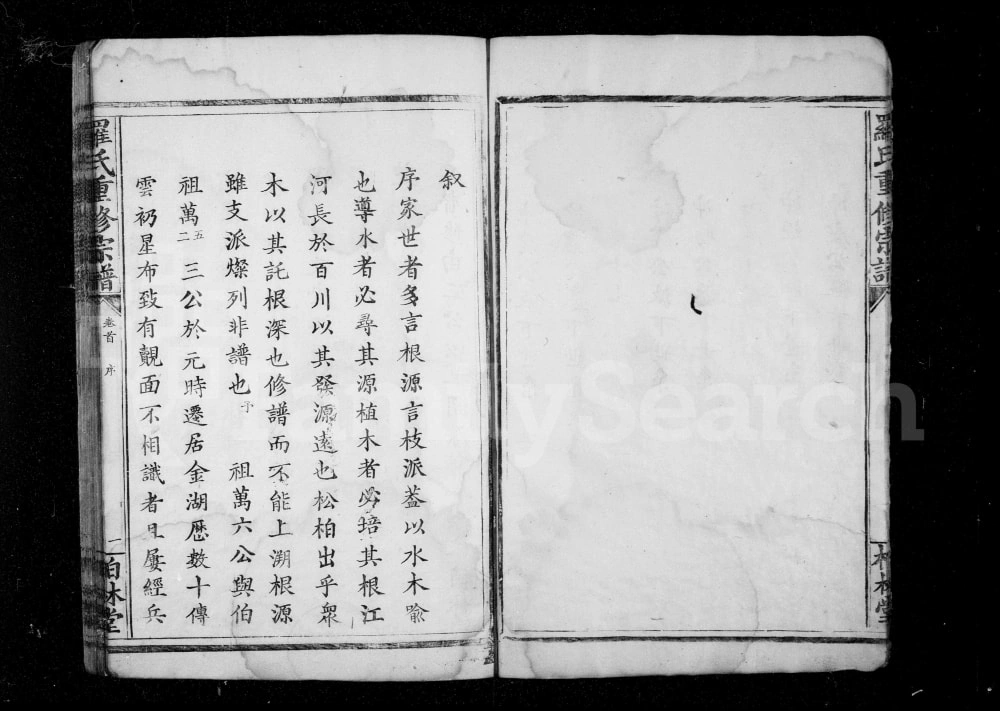 羅氏重修宗譜
叙
序家世者多言根源言枝派葢以水木喻
也導水者必尋其源植木者必培其根江
河長於百川以其發源遠也松柏出乎衆
木以其託根深也修譜而不能上溯根源
雖支派燦列非譜也予 祖萬六公與伯
祖萬五二三公於元時遷居金湖歷數十傳
雲礽星布致有覿面不相識者且屢經兵
羅氏重修宗譜
卷首 序
一
柏林堂
柏林堂
FamilySearch